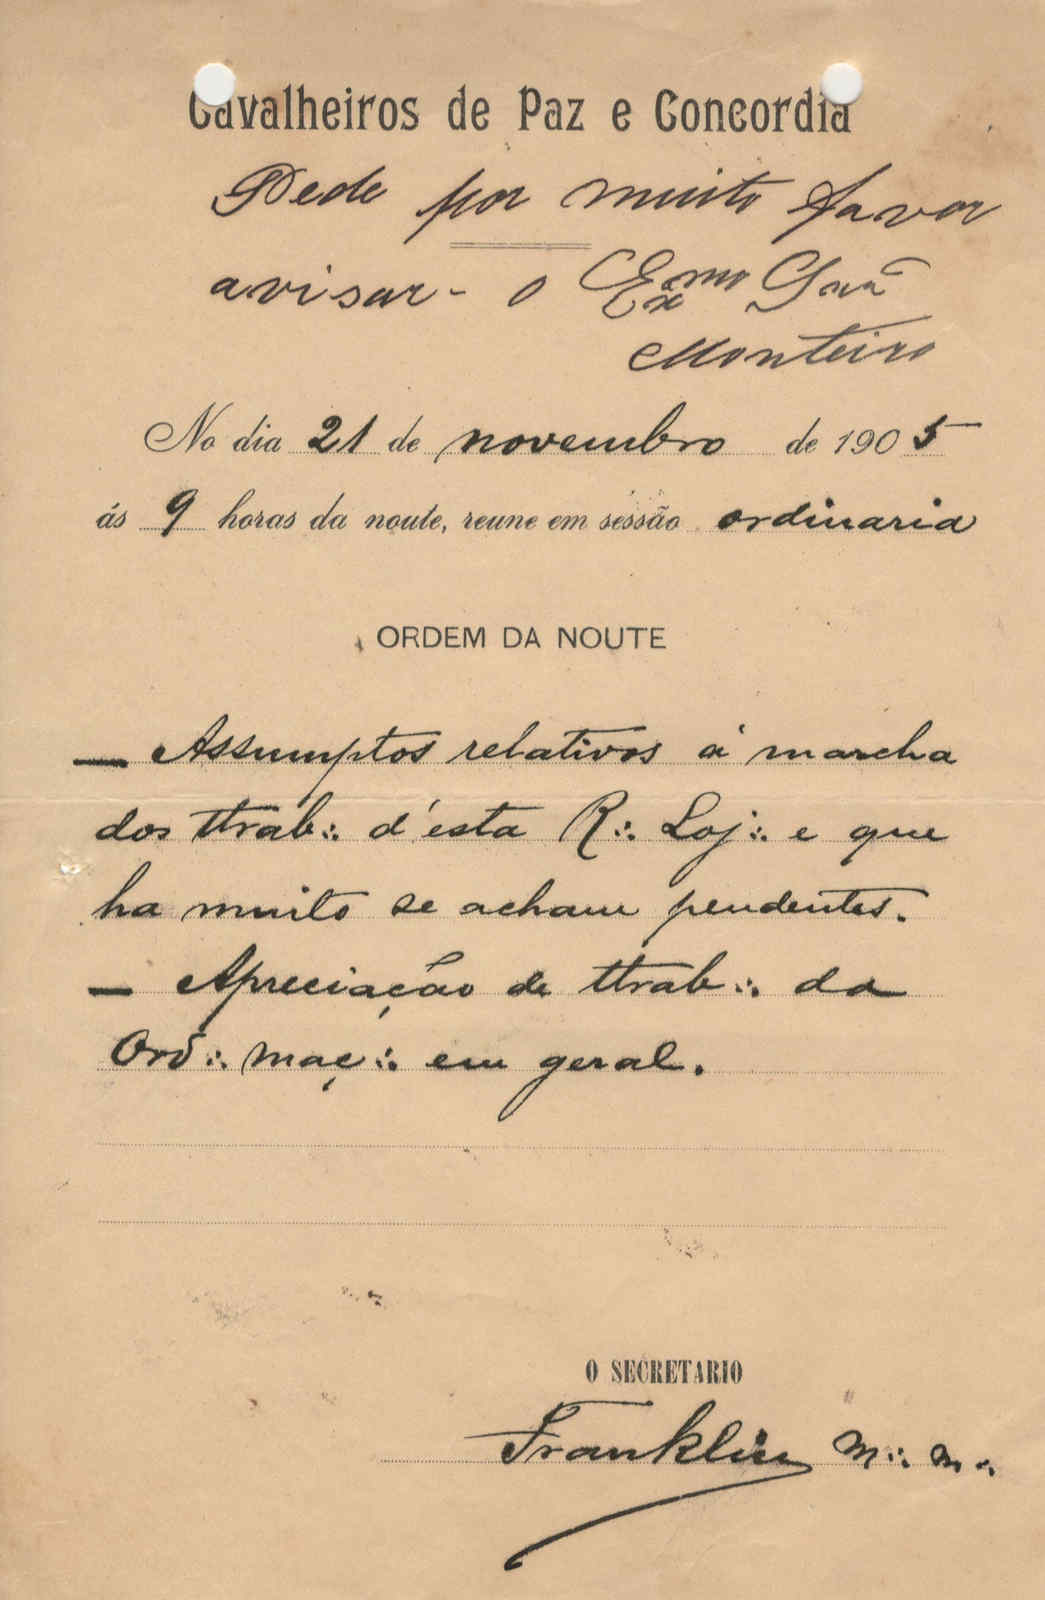 Cavalheiros de Paz e Concordia
Pede por muito favor
avisar - o Exmo
Monteiro
No dia 21 de novembro de 1905
ás 9 horas da noute, reune em sessão ordinaria
ORDEM DA NOUTE
— Assumptos relativos á marcha
dos ttrab∴ d'esta R∴ Loj∴ e que
ha muito se acham pendentes.
— Apreciação de ttrab∴ da
Ord∴ maç∴ em geral.
O SECRETARIO
Franklin M∴ m∴